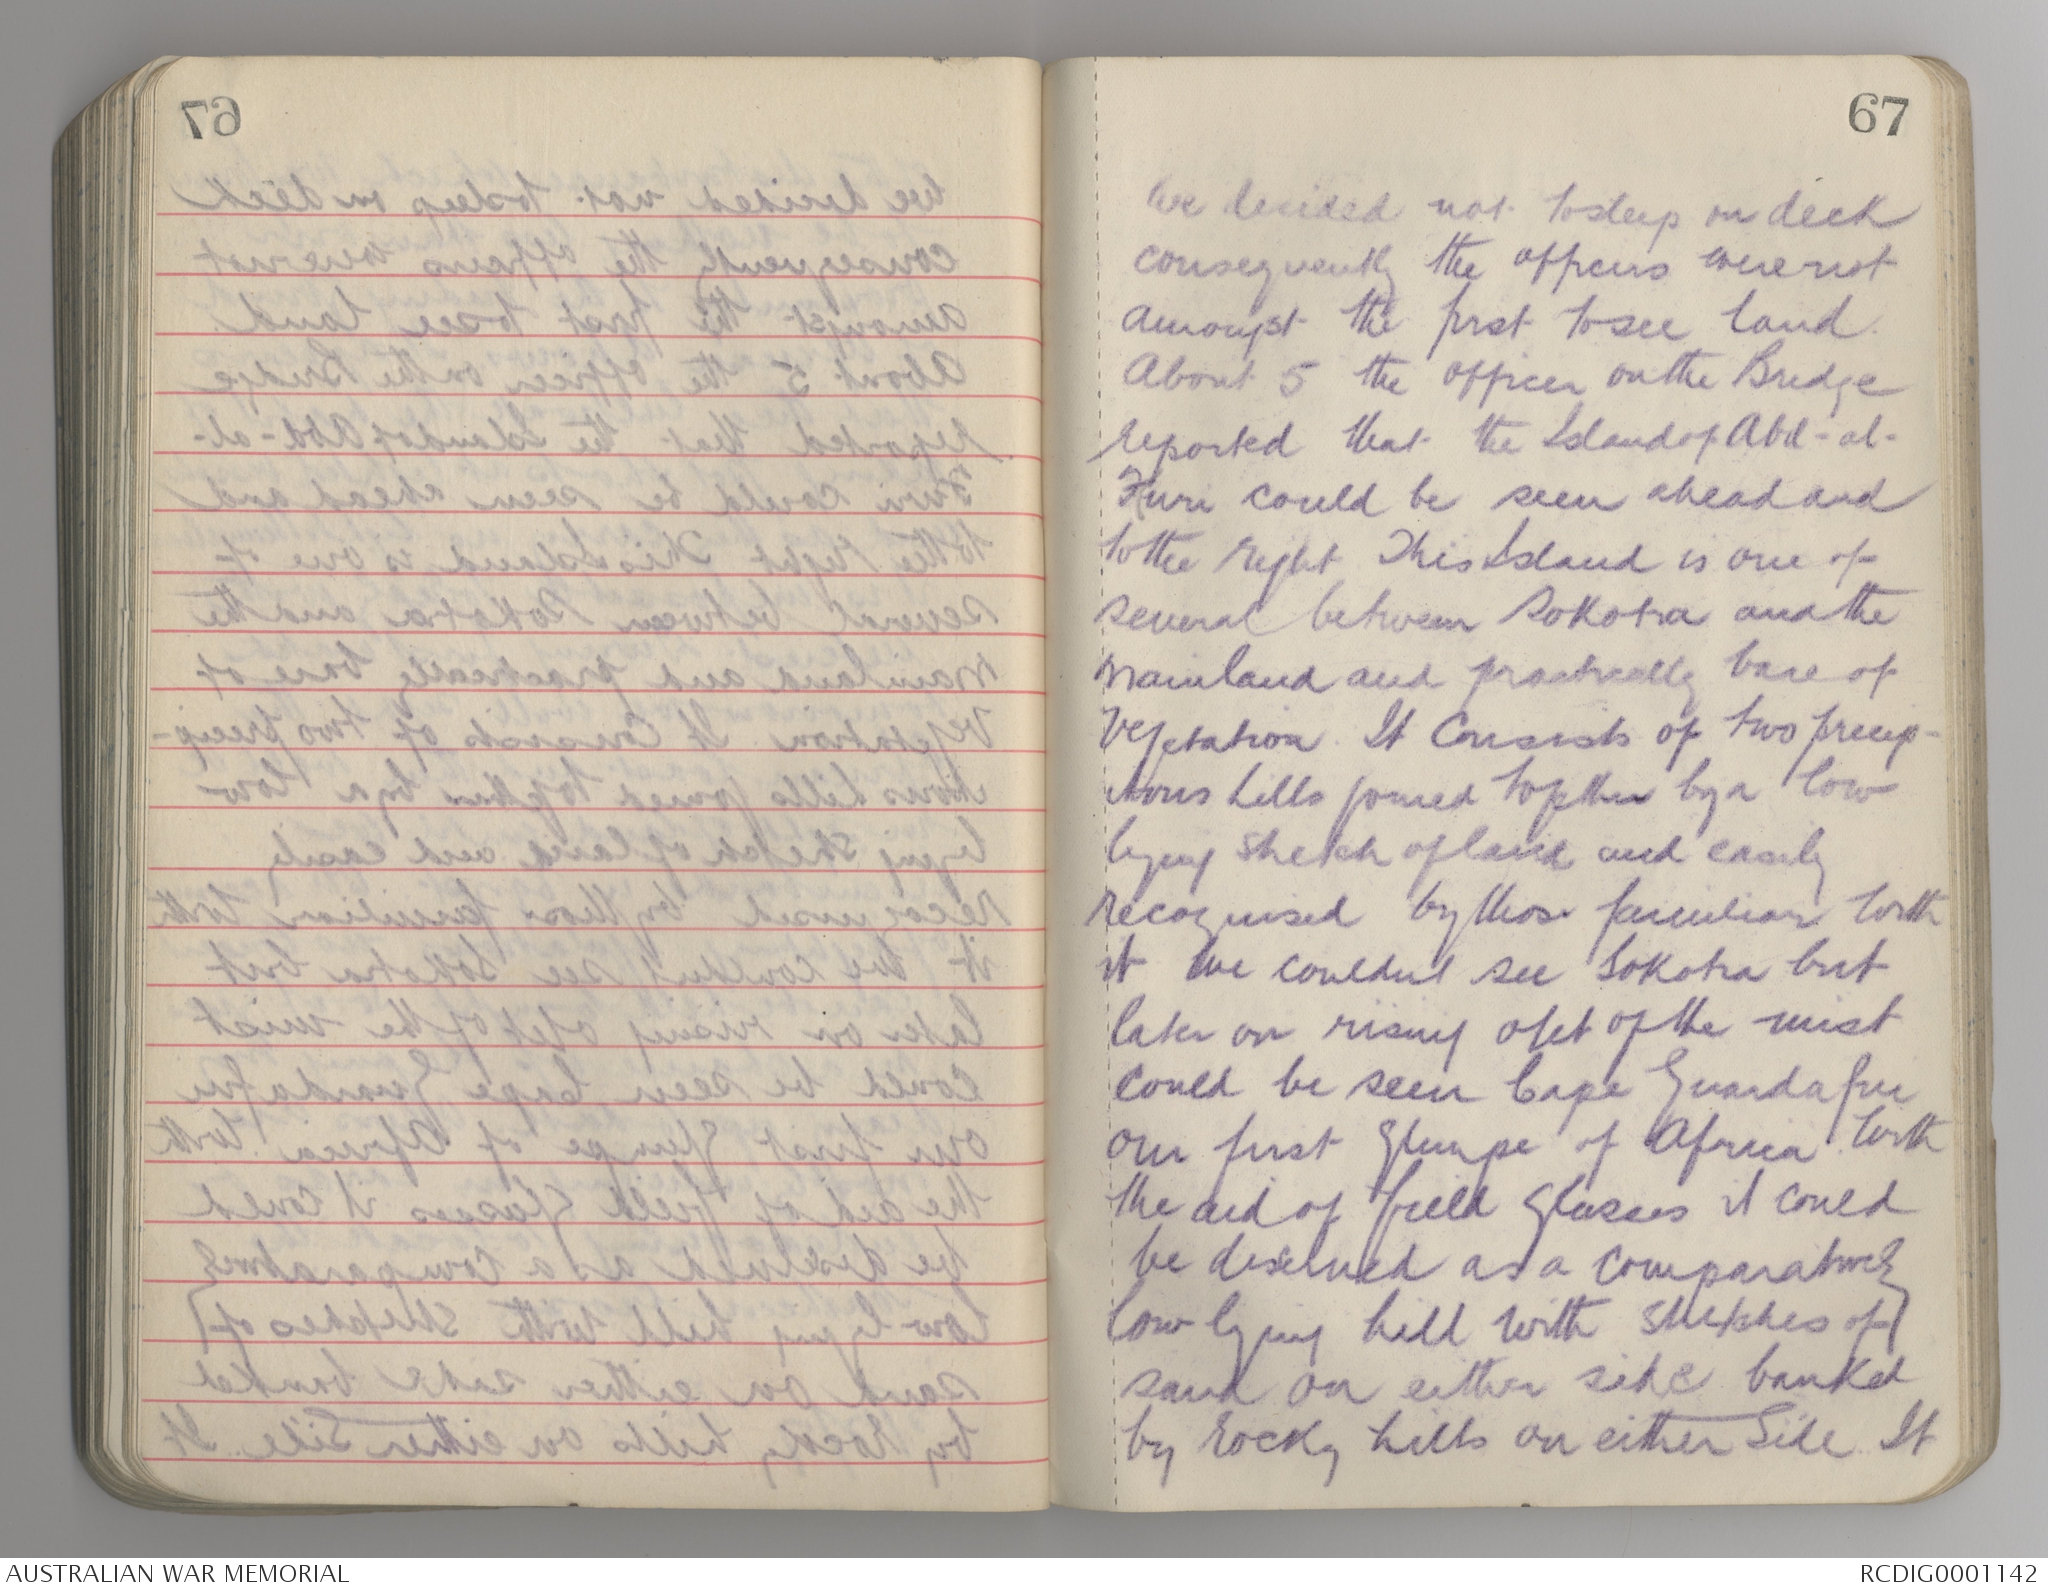 67
we decided not to sleep on deck
consequently the officers were not
amongst the first to see land.
About 5 the officer on the Bridge
reported that the Island of Abd-al-
Kuri could be seen ahead and
to the right This Island is one of
several between Sokotra and the
mainland and practically bare of
vegetation. It Consists of two precip-
itous hills joined together by a low
lying stretch of land and easily
recognised by those familiar with
it We couldnt see Sokotra but
later on rising out of the mist
could be seen Cape Guardafui
our first glimpse of Africa. With
the aid of field glasses it could
be discerned as a comparatively
low lying hill with stretches of
sand on either side banked
by Rocky hills on either Side. It
AUSTRALIAN WAR MEMORIAL
RCDIG0001142